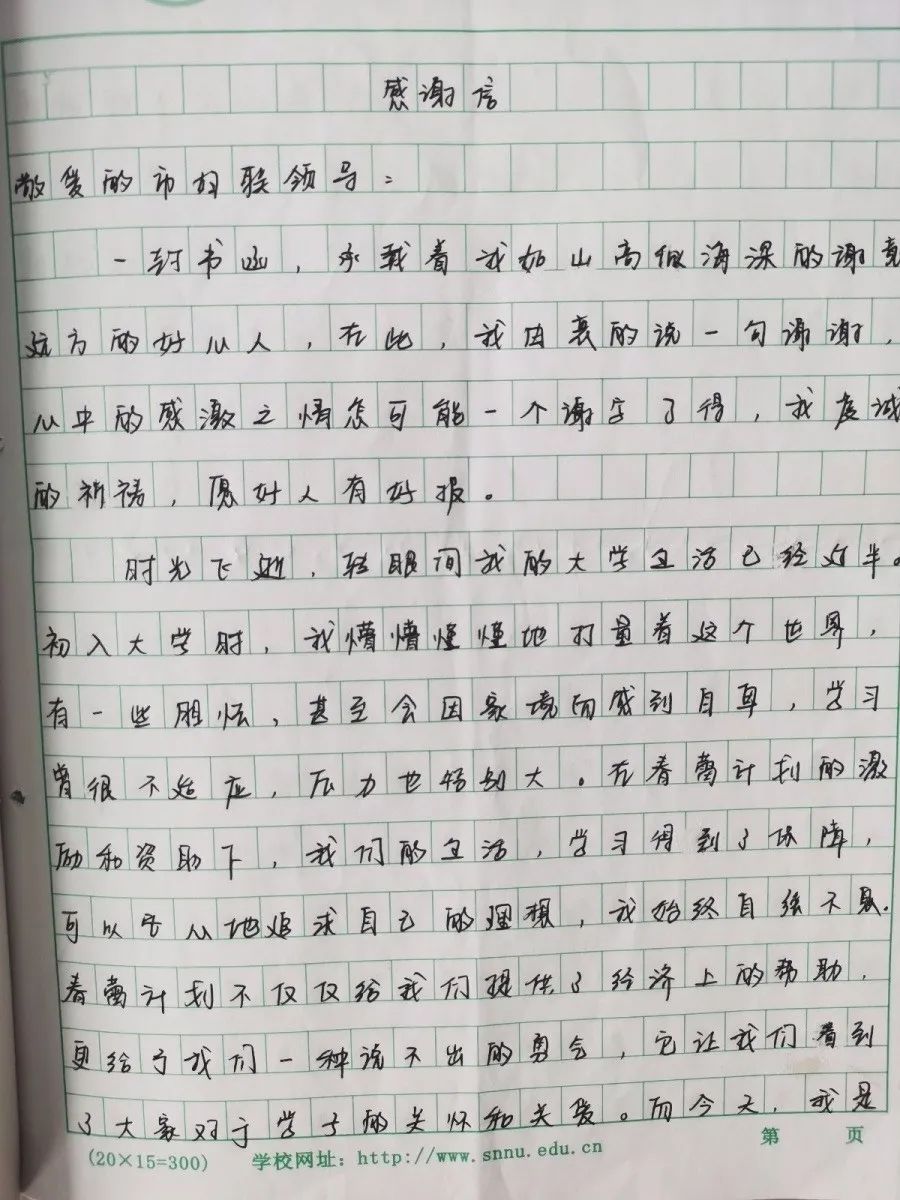 感谢信
敬爱的市妇联领导：
一封书函，承载着我如山高似海深的谢意
远方的好心人，在此，我由衷的说一句谢谢，
心中的感激之情怎可能一个谢字了得，我虔诚
的祈祷，愿好人有好报。
时光飞逝，转眼间我的大学生活已经过半。
初入大学时，我懵懵懂懂地打量着这个世界，
有一些胆怯，甚至会因家境而感到自卑，学习
曾很不适应，压力也特别大。在春蕾计划的激
励和资助下，我们的生活，学习得到了保障，
可以安心地追求自己的理想，我始终自强不息.
春蕾计划不仅仅给我们提供了经济上的帮助，
更给予我们一种说不出的勇气，它让我们看到
了大家对于学子的关怀和关爱。而今天，我是
(20×15=300) 学校网址：http://www.snnu.edu.cn 第 页